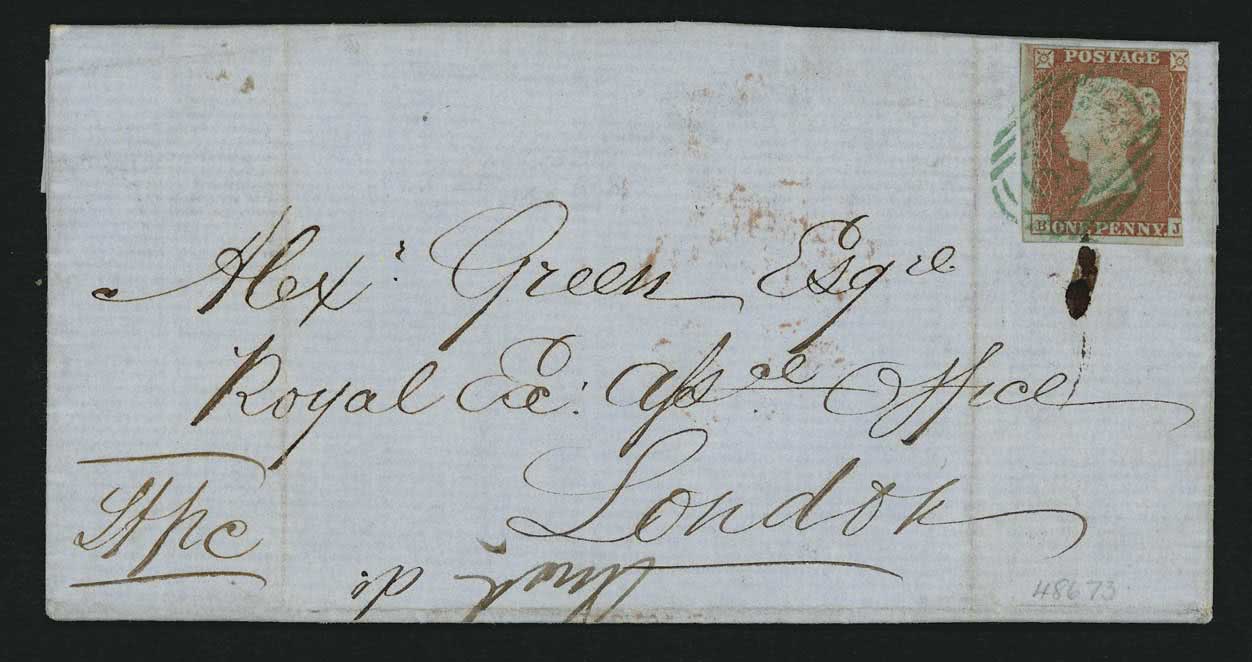 POSTAGE
B ONE PENNY. J
Alexr. Green Esqre
Royal Ex: Assce Office
London
48673